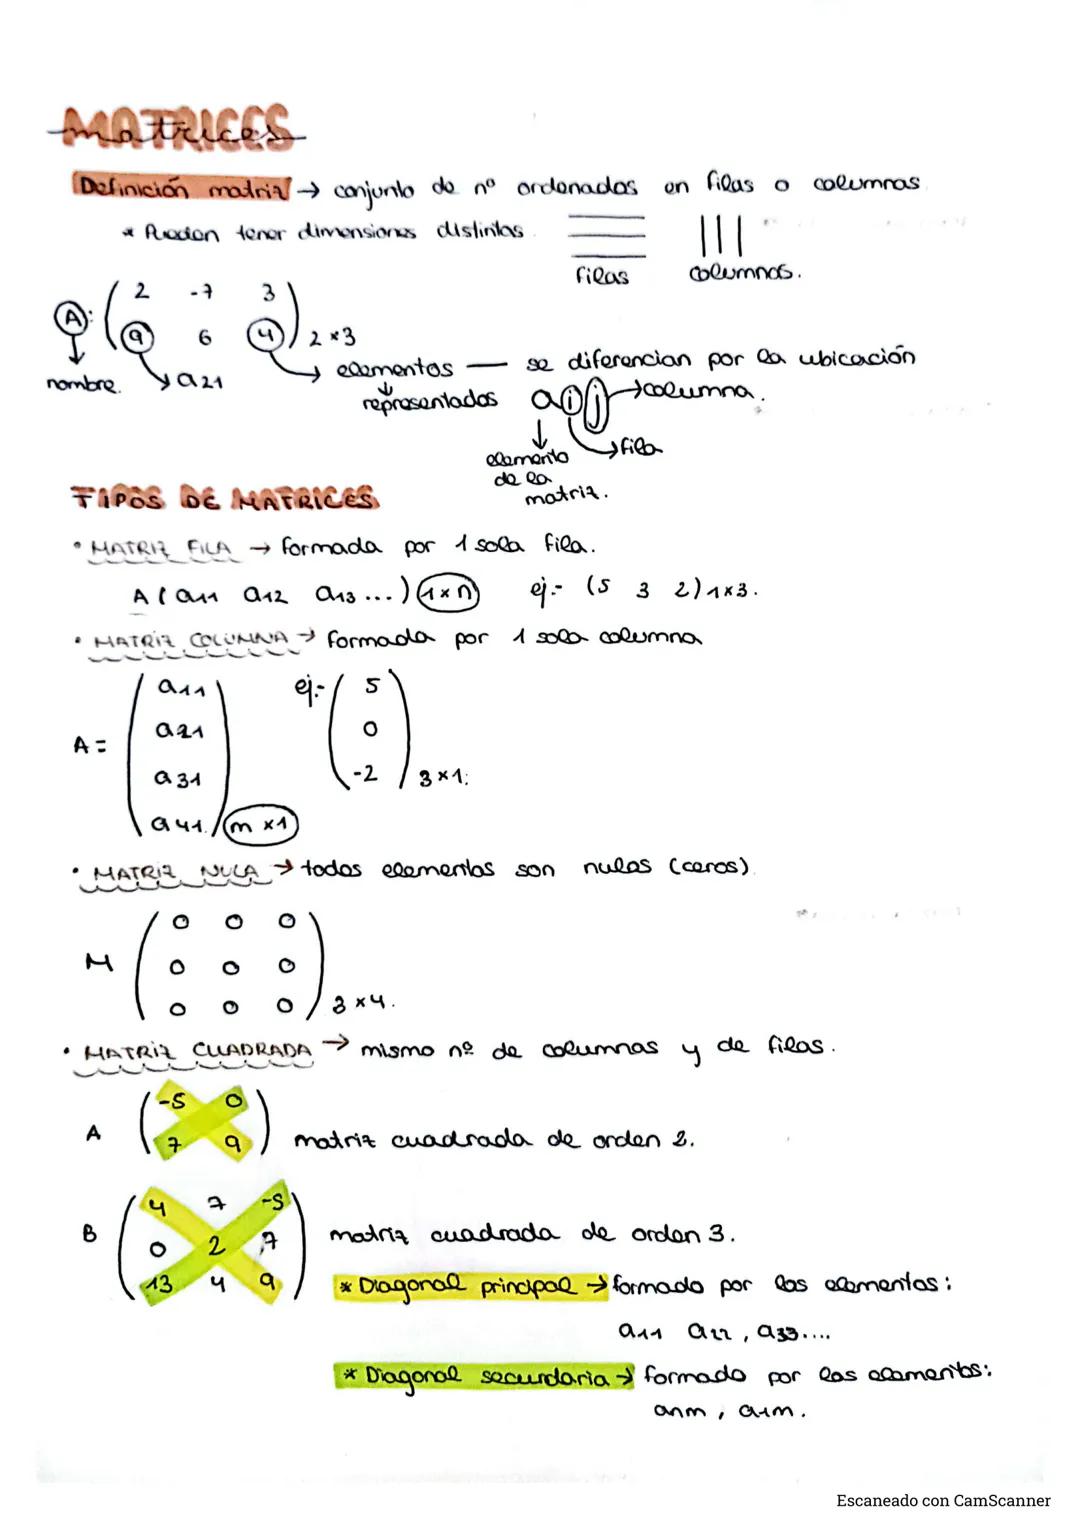 MATRICES
matrices
Definición matriz → conjunto de nº ordenados en filas o columnas
* Pueden tener dimensiones distintas.
filas columnas.
A: ( 2 -7 3
9 6 4 ) 2×3
nombre. a21 elementos — se diferencian por la ubicación
representados aij → columna.
fila
elemento
de la
matriz.
TIPOS DE MATRICES
• MATRIZ FILA → formada por 1 sola fila.
A ( a11 a12 a13 ... ) 1×n ej:- (5 3 2) 1×3.
• MATRIZ COLUMNA → formada por 1 sola columna
a11 ej:- 5
a21 0
A =
a31 -2 3×1.
a41. m×1
• MATRIZ NULA → todos elementos son nulos (ceros).
0 0 0
M 0 0 0
0 0 0 3×4.
• MATRIZ CUADRADA → mismo nº de columnas y de filas.
-5 0
A 7 9 matriz cuadrada de orden 2.
4 7 -5
B 0 2 7 matriz cuadrada de orden 3.
13 4 9 * Diagonal principal → formado por los elementos:
a11 a22, a33....
* Diagonal secundaria → formado por los elementos:
anm, a1m.
Escaneado con CamScanner